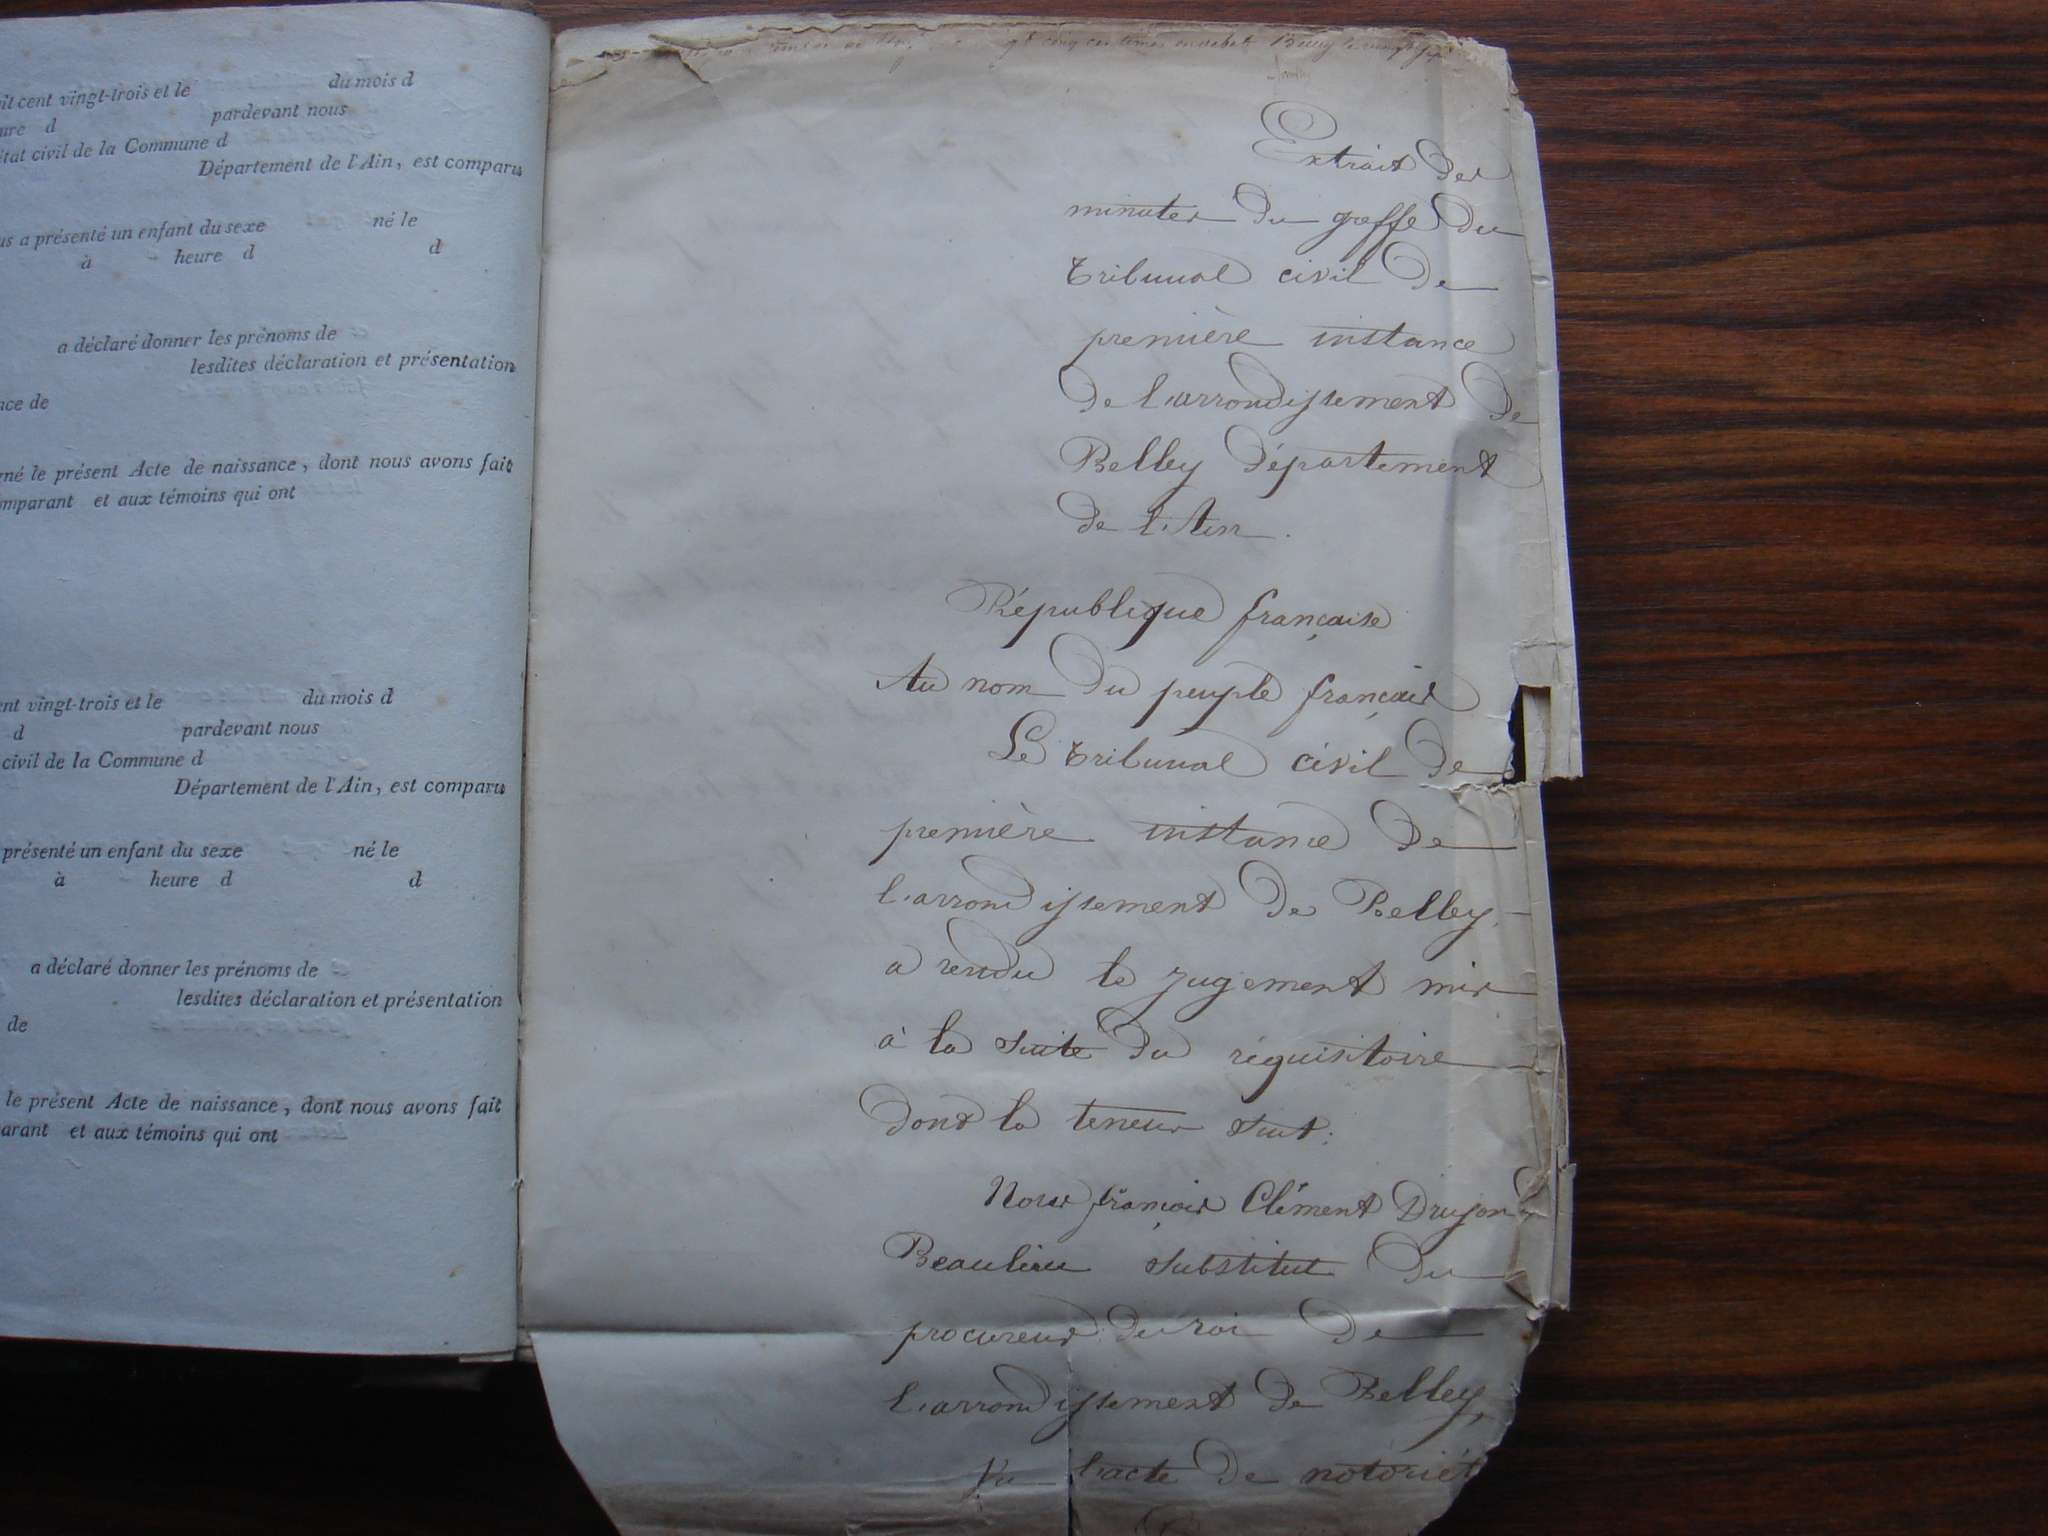 cent vingt-trois et le du mois d
d pardevant nous
état civil de la Commune d
Département de l'Ain, est comparu
a présenté un enfant du sexe né le
à heure d d
a déclaré donner les prénoms de
lesdites déclaration et présentation
de
le présent Acte de naissance, dont nous avons fait
et aux témoins qui ont
vingt-trois et le du mois d
d pardevant nous
civil de la Commune d
Département de l'Ain, est comparu
présenté un enfant du sexe né le
à heure d d
a déclaré donner les prénoms de
lesdites déclaration et présentation
de
le présent Acte de naissance, dont nous avons fait
et aux témoins qui ont
cinq centimes
Extrait des
minutes du greffe du
tribunal civil de
première instance
de l'arrondissement de
Belley département
de l'Ain.
République française
Au nom du peuple français
Le tribunal civil de
première instance de
l'arrondissement de Belley
a rendu le jugement mis
à la suite du réquisitoire
dont la teneur suit:
Nous françois Clément Drujon
Beaulieu substitut du
procureur du roi de
l'arrondissement de Belley,
Vu l'acte de notoriét